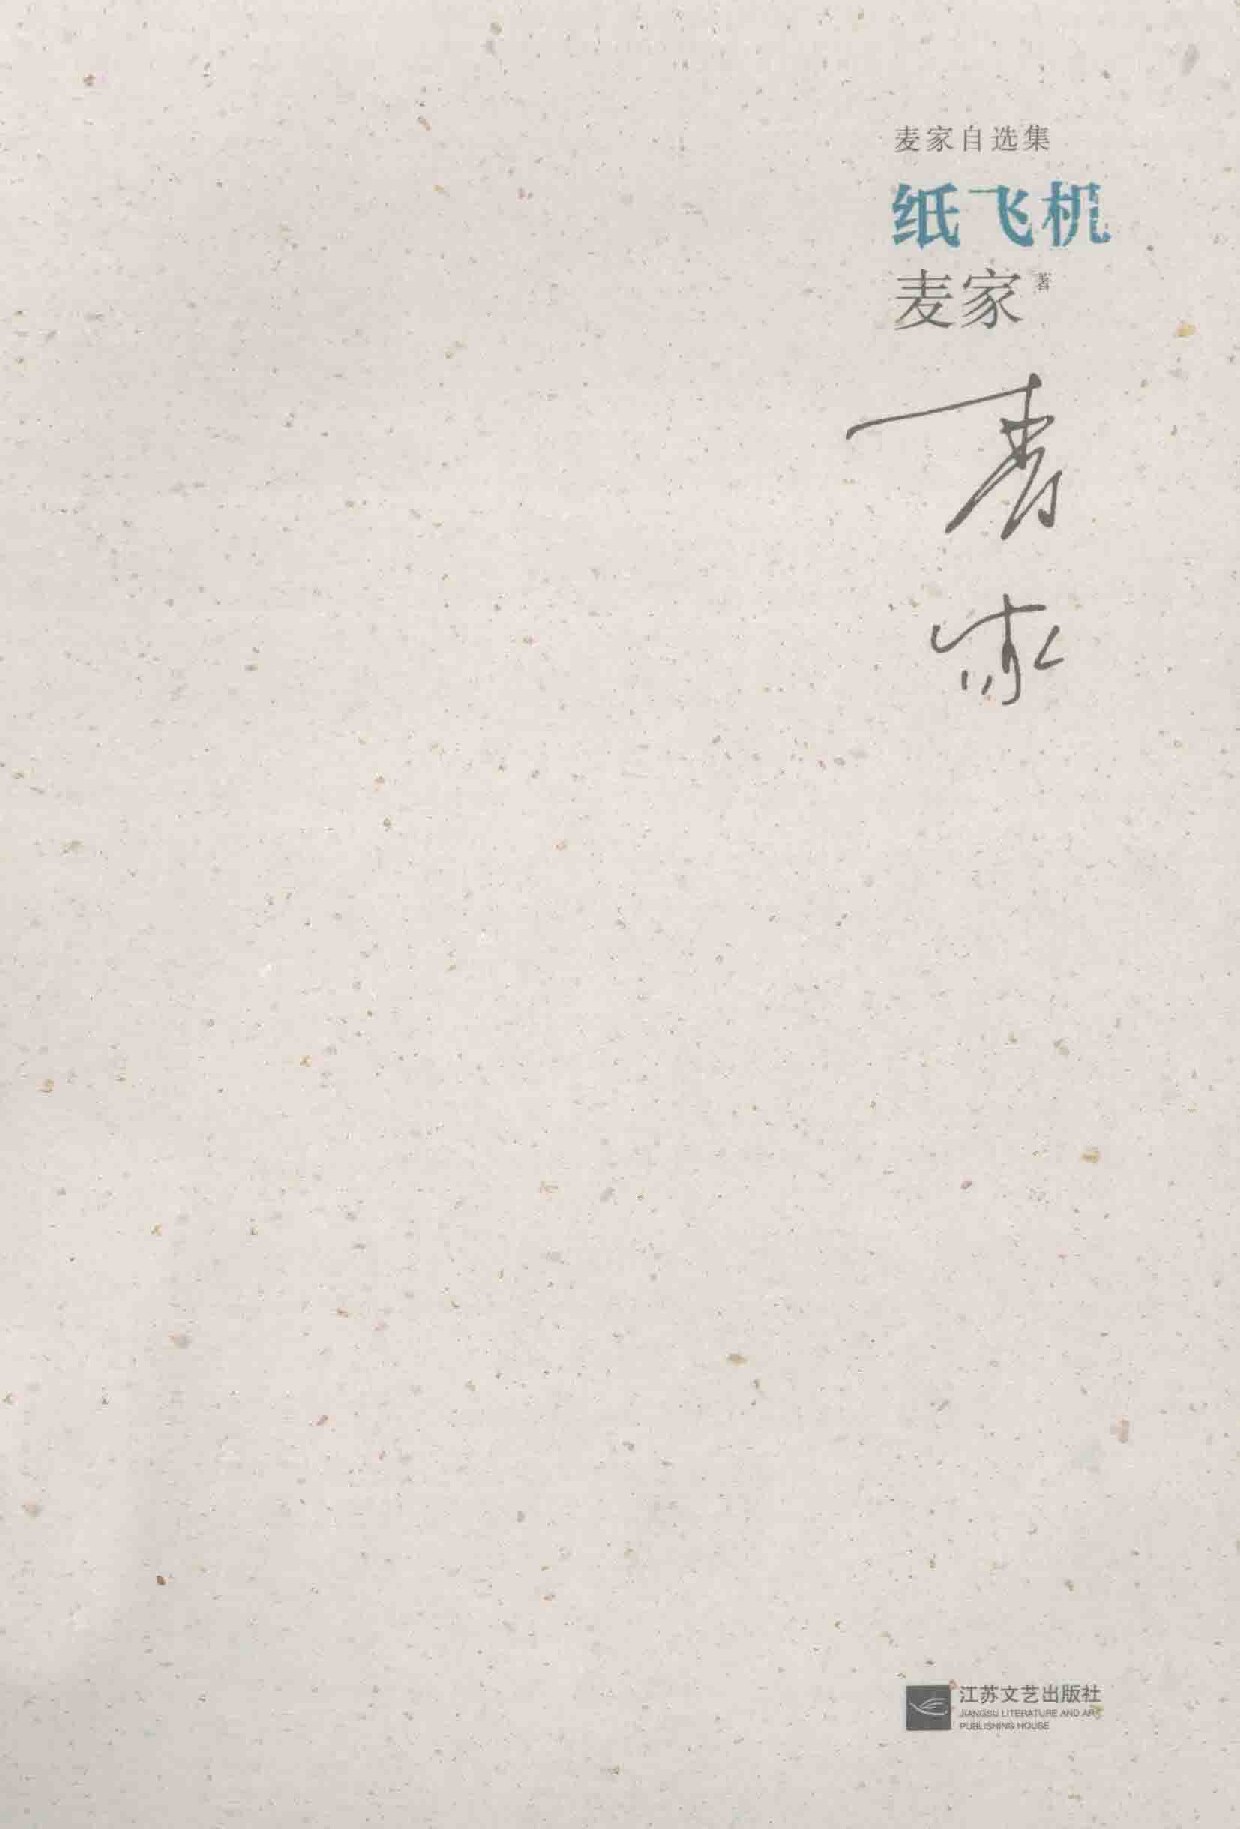 麦家自选集
纸飞机
麦家 著
麦家
江苏文艺出版社
JIANGSU LITERATURE AND ART
PUBLISHING HOUSE